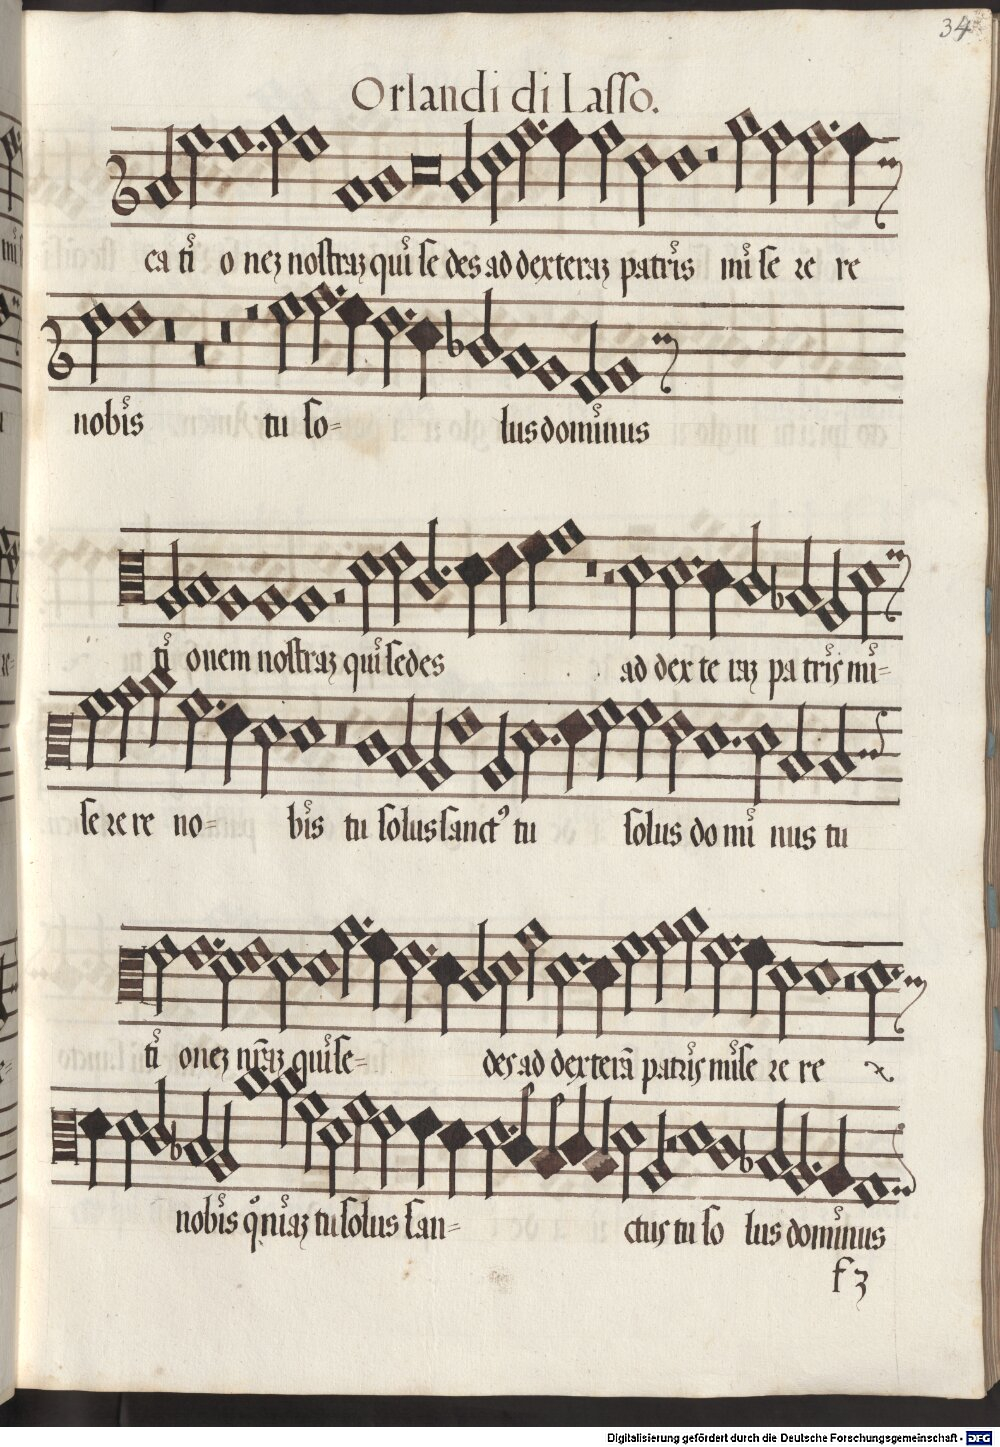 34
Orlandi di Lasso.
ca ti o nez nostraz qui se des ad dexteraz patris mi se re re
nobis tu so= lus dominus
ti onem nostraz qui sedes ad dex te raz pa tris mi=
se re re no= bis tu solus sanct9 tu solus do mi nus tu
ti onez nr̃az qui se= des ad dexterã patris mise re re
nobis qo̊niaz tu solus san= ctus tu so lus dominus
f3
Digitalisierung gefördert durch die Deutsche Forschungsgemeinschaft - DFG